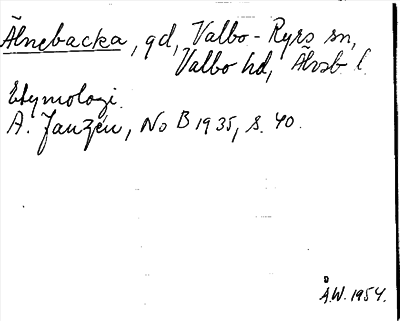 Älnebacka, gd, Valbo-Ryrs sn,
Valbo hd, Älvsb l.
Etymologi.
A. Janzén, NoB 1935, s. 40.
Å.W. 1954.